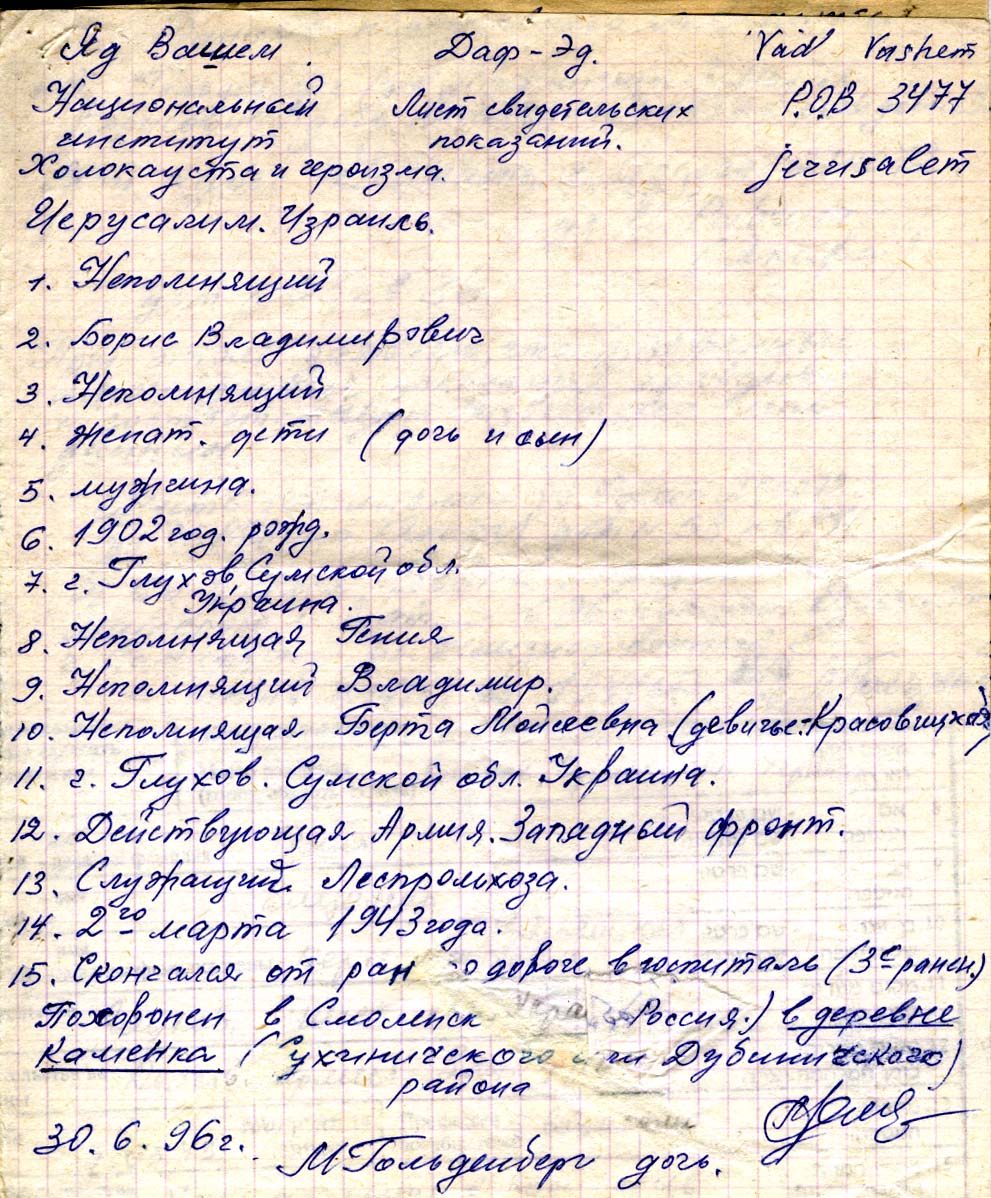 Яд Вашем. Даф-Эд. "Yad Vashem
Национальный Лист свидетельских P.O.B 3477
институт показаний.
Холокауста и героизма. jerusalem
Иерусалим. Израиль.
1. Непомнящий
2. Борис Владимирович
3. Непомнящий
4. женат. дети (дочь и сын)
5. мужчина.
6. 1902 год. рожд.
7. г. Глухов, Сумской обл.
Украина.
8. Непомнящая Гения
9. Непомнящий Владимир.
10. Непомнящая Берта Мойсеевна (девичье: Красовицкая)
11. г. Глухов. Сумской обл. Украина.
12. Действующая Армия. Западный фронт.
13. Служащий Леспромхоза.
14. 2го марта 1943 года.
15. Скончался от ран о дороге в госпиталь (3е ранен.)
Похоронен в Смоленск Россия.) в деревне
Каменка (Сухиничского или Дубиничского)
района
30. 6. 96 г.
М Гольденберг дочь.